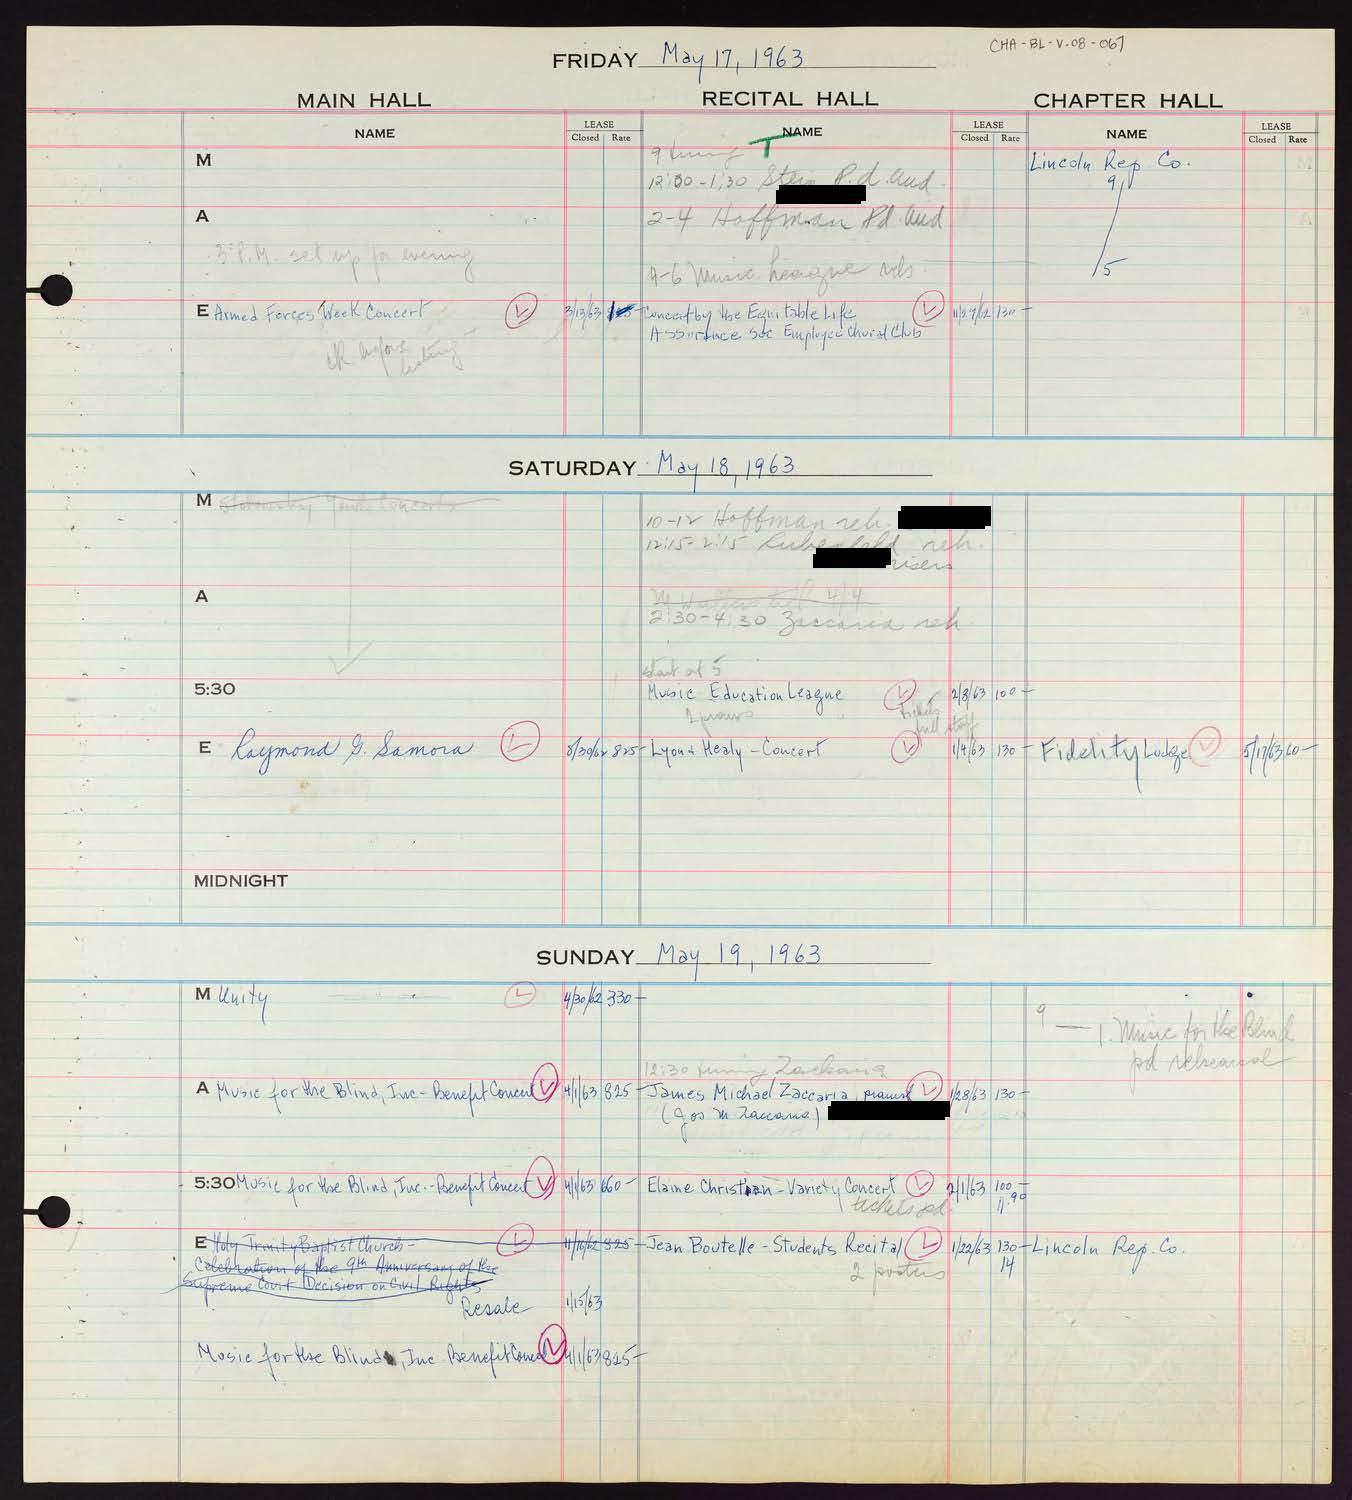 CHA-BL-V-08-067
FRIDAY May 17, 1963
MAIN HALL
RECITAL HALL
CHAPTER HALL
NAME
LEASE
Closed Rate
NAME
LEASE
Closed Rate
NAME
LEASE
Closed Rate
M
9 tuning T
12:00-1:30 Stein P.d. aud.
Lincoln Rep Co.
9
A
2-4 Hoffman Pd. aud
3 P.M. set up for evening
4-6 Music League reh.
15
E Armed Forces Week Concert L 3/13/63
Concert by the Equitable Life L 11/27/62 130-
Assurance Soc Employee Choral Club
OK before
SATURDAY May 18, 1963
M Stokowsky Youth Concerts
10-12 Hoffman reh.
12:15-2:15 reh.
risers
A
4/4
2:30-4:30 Zaccaria reh.
start at 5
5:30
Music Education League L 2/8/63 100-
2 pianos
tickets
full staff
E Raymond G. Samora L 8/30/62 825-
Lyon & Healy - Concert L 1/4/63 130-
Fidelity Lodge L 5/17/63 60-
MIDNIGHT
SUNDAY May 19, 1963
M Unity L 4/30/62 330-
9 — 1. Music for the Blind
pd rehearsal
12:30 tuning Zackaria
A Music for the Blind, Inc - Benefit Concert L 4/1/63 825-
James Michael Zaccaria, pianist L 1/28/63 130-
(Jos M Zaccaria)
5:30 Music for the Blind, Inc. - Benefit Concert L 4/1/63 660-
Elaine Christian - Variety Concert L 2/1/63 100-
11.90
tickets pd.
E Holy Trinity Baptist Church - L 11/16/62 825-
Jean Boutelle - Students Recital L 1/22/63 130-
14
Lincoln Rep. Co.
Celebration of the 9th Anniversary of the
Supreme Court Decision on Civil Rights
2 posters
Resale 1/15/63
Music for the Blind, Inc Benefit Concert L 4/1/63 825-